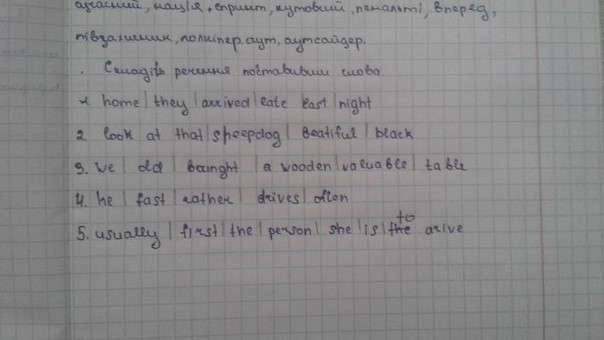 учасний, нація, спринт, кутовий, пенальті, вперед,
півзахисник, голкіпер, аут, аутсайдер.
. Складіть речення поставивши слова
1 home | they | arrived | late last | night
2. look at that | sheepdog | Beatiful | black
3. we | old | baught | a wooden | valuable | table
4. he | fast | rather | drives | often
5. usually | first | the | person | she | is | to arive